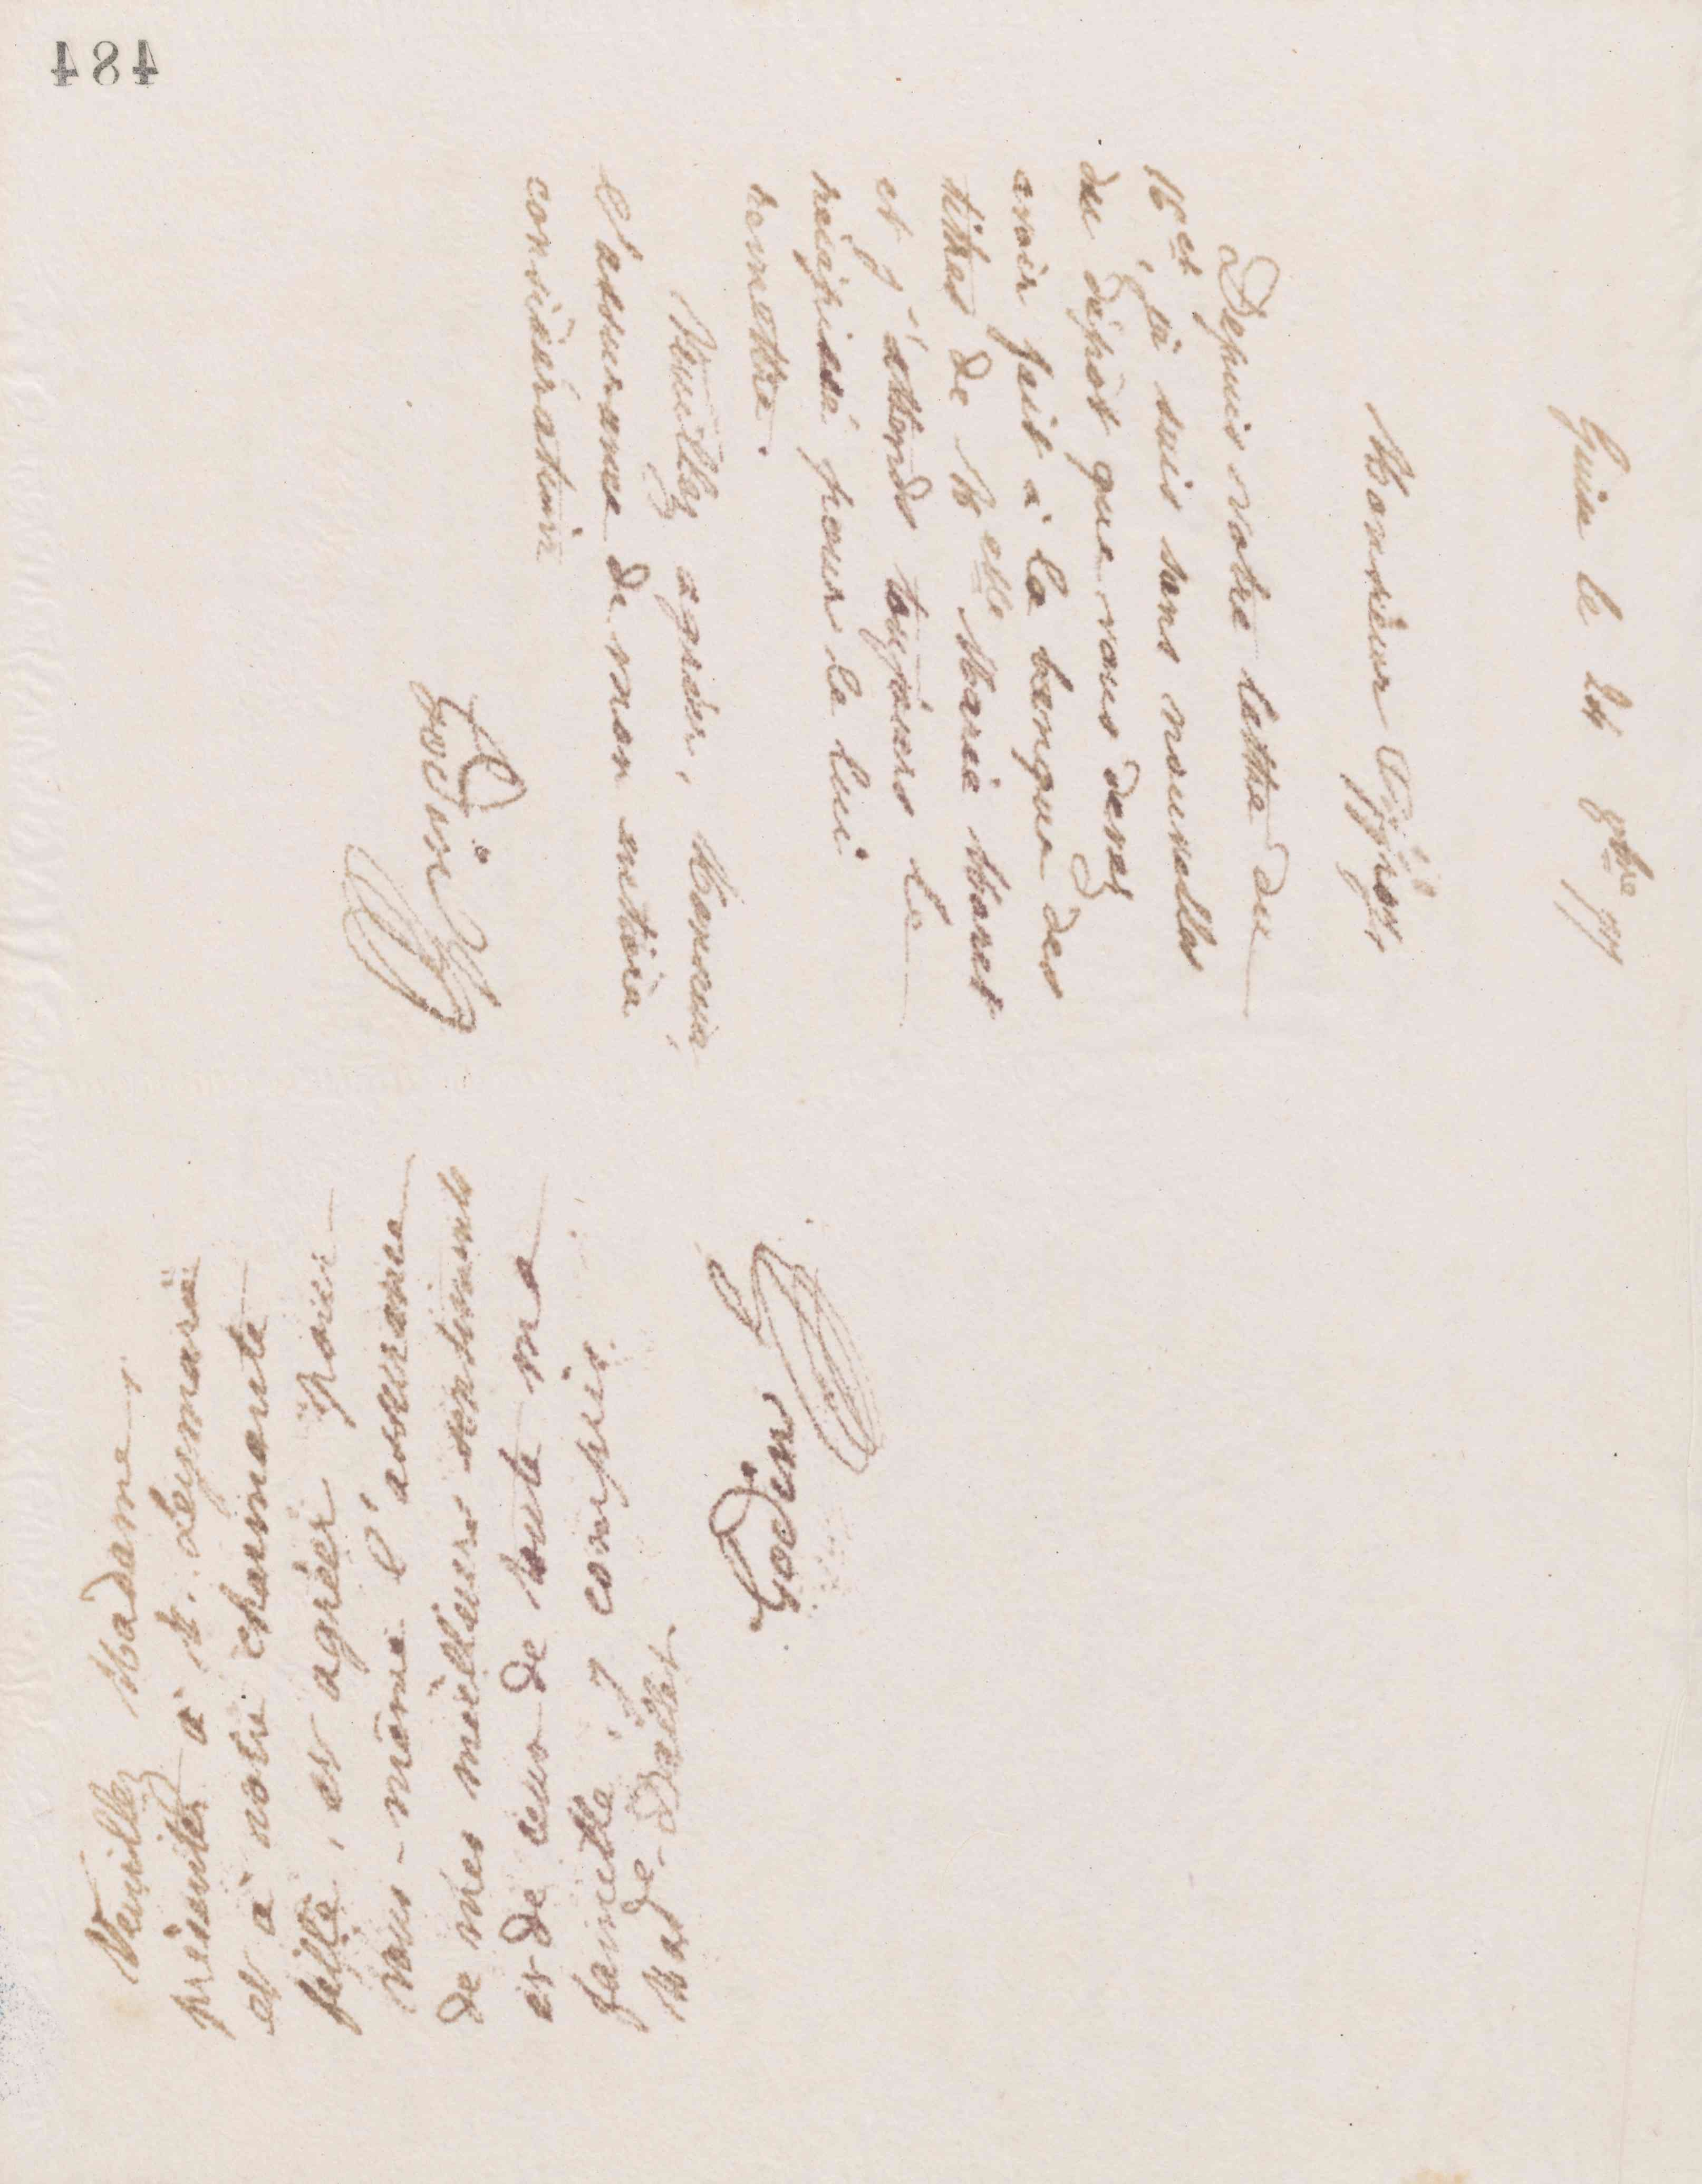 484
Guise le 24 9bre 77
Monsieur
Depuis votre lettre du
16 ct, je suis sans nouvelles
du dépôt que vous devez
avoir fait à la banque des
titres de Melle Marie Moret
et j'attends toujours le
récépissé pour le lui
remettre.
Veuillez agréer, Monsieur,
l'assurance de mon entière
considération
Godin
Veuillez Madame,
présenter à M. Leymarie
et à votre charmante
fille, et agréer pour
vous-même l'assurance
de mes meilleurs sentiments
et de ceux de toute ma
famille y compris
Made Dallet
Godin